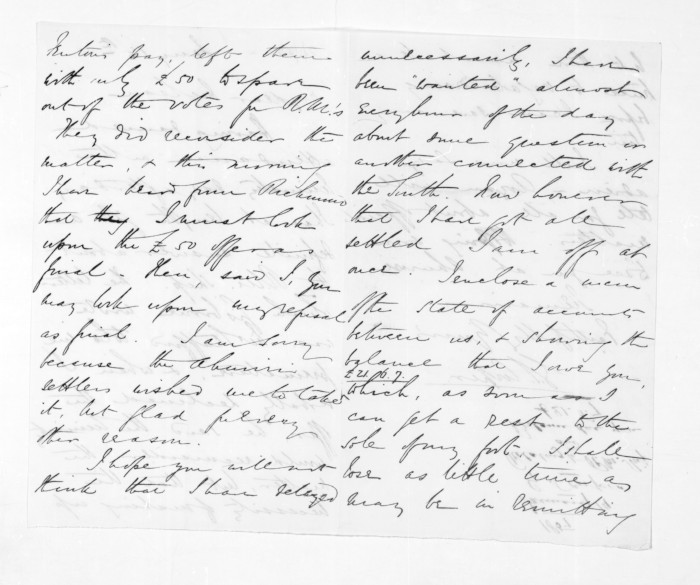 pay, left them
with only £50 to spare
out of the votes for R.M.'s
They did reconsider the
matter, & this morning
I have heard from Richmond
that they I must look
upon the £50 offer as
final. Then, said I, you
may look upon my refusal
as final. I am sorry
because the Ahuriri
settlers wished me to take
it, but glad for every
other reason.
I hope you will not
think that I have delayed
unnecessarily, I have
been "wanted" almost
every hour of the day
about some question or
another connected with
the South. Now however
that I have got all
settled I am off at
once. I enclose a mem
of the state of accounts
between us, & showing the
balance that I owe you,
which, as soon as I
can get a rest to the
sole of my foot, I shall
lose as little time as
may be in remitting